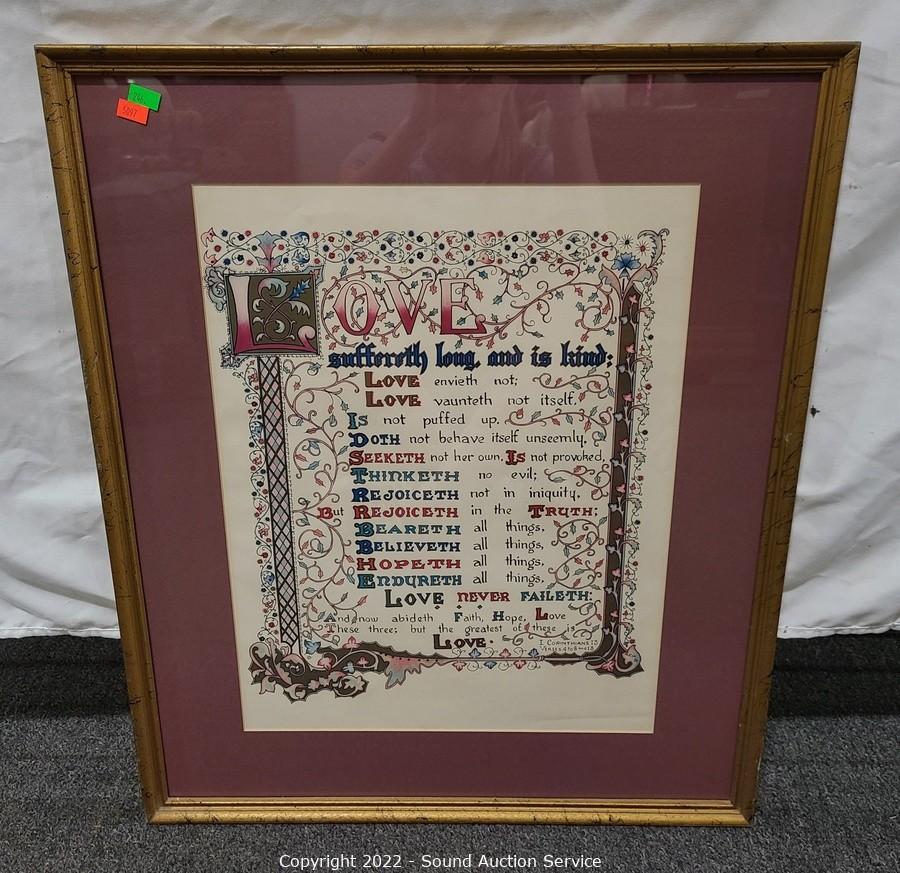 246
5097
LOVE
suffereth long, and is kind:
LOVE envieth not;
LOVE vaunteth not itself,
Is not puffed up,
DOTH not behave itself unseemly,
SEEKETH not her own, Is not provoked,
THINKETH no evil;
REJOICETH not in iniquity,
But REJOICETH in the TRUTH;
BEARETH all things,
BELIEVETH all things,
HOPETH all things,
ENDURETH all things,
LOVE NEVER FAILETH:
And now abideth Faith, Hope, Love
These three; but the greatest of these is
LOVE.
I CORINTHIANS 13
VERSES 4 TO 8 and 13
Copyright 2022 - Sound Auction Service